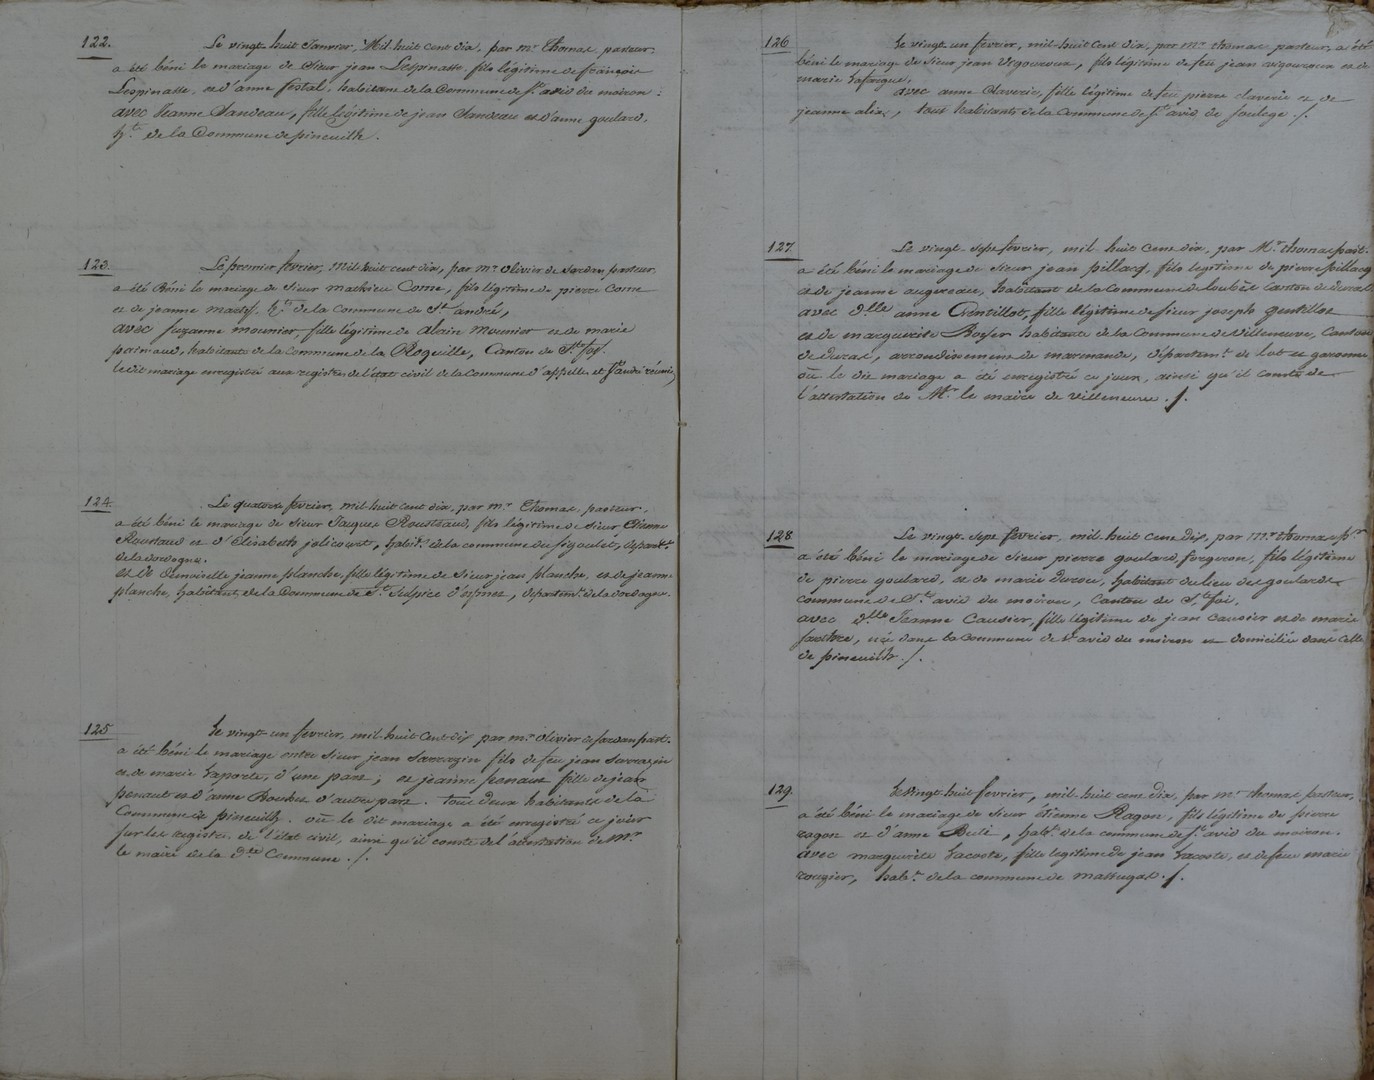 122.
Le vingt huit Janvier, Mil huit cent dix, par mr Thomas, pasteur,
a été béni le mariage de Sieur jean Lespinasse, fils légitime de françois
Lespinasse, et d'anne festal, habitant de la Commune de St avid du moiron :
avec Jeanne Jandeau, fille légitime de jean Jandeau et d'anne goulard,
ht de la Commune de pineuilh.
123.
Le premier fevrier, Mil huit cent dix, par mr Olivier de Sardan pasteur,
a été Béni le mariage de Sieur mathieu Come, fils légitime de pierre Come
et de jeanne de la Commune de St andré,
avec suzanne mounier, fille légitime de alain Mounier et de marie
habitante de la Commune de la Roqueille, Canton de Ste foy.
le dit mariage enregistré aux registres de l'état civil de la Commune d'appelles et St andré réunies
124.
Le quatorze fevrier, mil huit cent dix, par mr Thomas, pasteur,
a été béni le mariage de Sieur Jaques Roustaud, fils légitime de Sieur Etienne
Roustaud et d'Elisabeth jolicourt, habit. de la commune du figoulet, departt
de la dordogne.
et de Demoiselle jeanne planche, fille légitime de Sieur jean planche, et de jeanne
planche, habitant de la Commune de St Sulpice d'eymet, departemt de la dordogne.
125
Le vingt un fevrier, mil huit Cent dix par mr Olivier de sardan past.
a été béni le mariage entre Sieur jean Sarrazin fils de feu jean Sarrazin
et de marie Laporte, d'une part, et jeanne penaut fille de jean
penaut et d'anne Boulet d'autre part. tous deux habitants de la
Commune de pineuilh. où le dit mariage a été enregistré ce jour
sur les registres de l'état civil, ainsi qu'il conste de l'attestation de Mr
le maire de la dte Commune ./.
126
Le vingt un fevrier, mil-huit cent dix, par mr thomas pasteur, a été
béni le mariage de Sieur jean Vigouroux, fils légitime de feu jean vigouroux et de
marie Lafargue,
avec anne Claverie, fille légitime de feu pierre claverie et de
jeanne alix, tout habitants de la Commune de St avid de soulege ./.
127.
Le vingt-sept fevrier, mil huit cent dix, par Mr thomas past.
a été béni le mariage de Sieur jean pillacq, fils legitime de pierre pillacq
et de jeanne augereau, habitant de la Commune de loubès Canton de duras
avec dlle anne Gentillot, fille légitime de Sieur joseph gentillot
et de marguerite Boyer habitante de la Commune de Villeneuve, Canton
de duras, arrondissement de marmande, département de Lot et garonne
où le dit mariage a été enregistré ce jour, ainsi qu'il conste de
l'attestation de Mr le maire de Villeneuve ./.
128
Le vingt sept fevrier, mil huit cent dix, par mr thomas pr
a été béni le mariage de Sieur pierre goulard, forgeron, fils légitime
de pierre goulard, et de marie durege, habitant du lieu des goulards
commune de St avid du moiron, Canton de Ste foi,
avec dlle Jeanne Causier, fille légitime de jean causier et de marie
née dans la commune de St avid du moiron et domiciliée dans celle
de pineuilh ./.
129.
Le vingt huit fevrier, mil huit cent dix, par mr thomas pasteur,
a été béni le mariage de Sieur étienne Ragon, fils légitime de pierre
ragon et d'anne Buté, habt de la commune de St avid du moiron.
avec marguerite Lacoste, fille legitime de jean Lacoste, et de feue marie
rougier, habt de la commune de massugas ./.